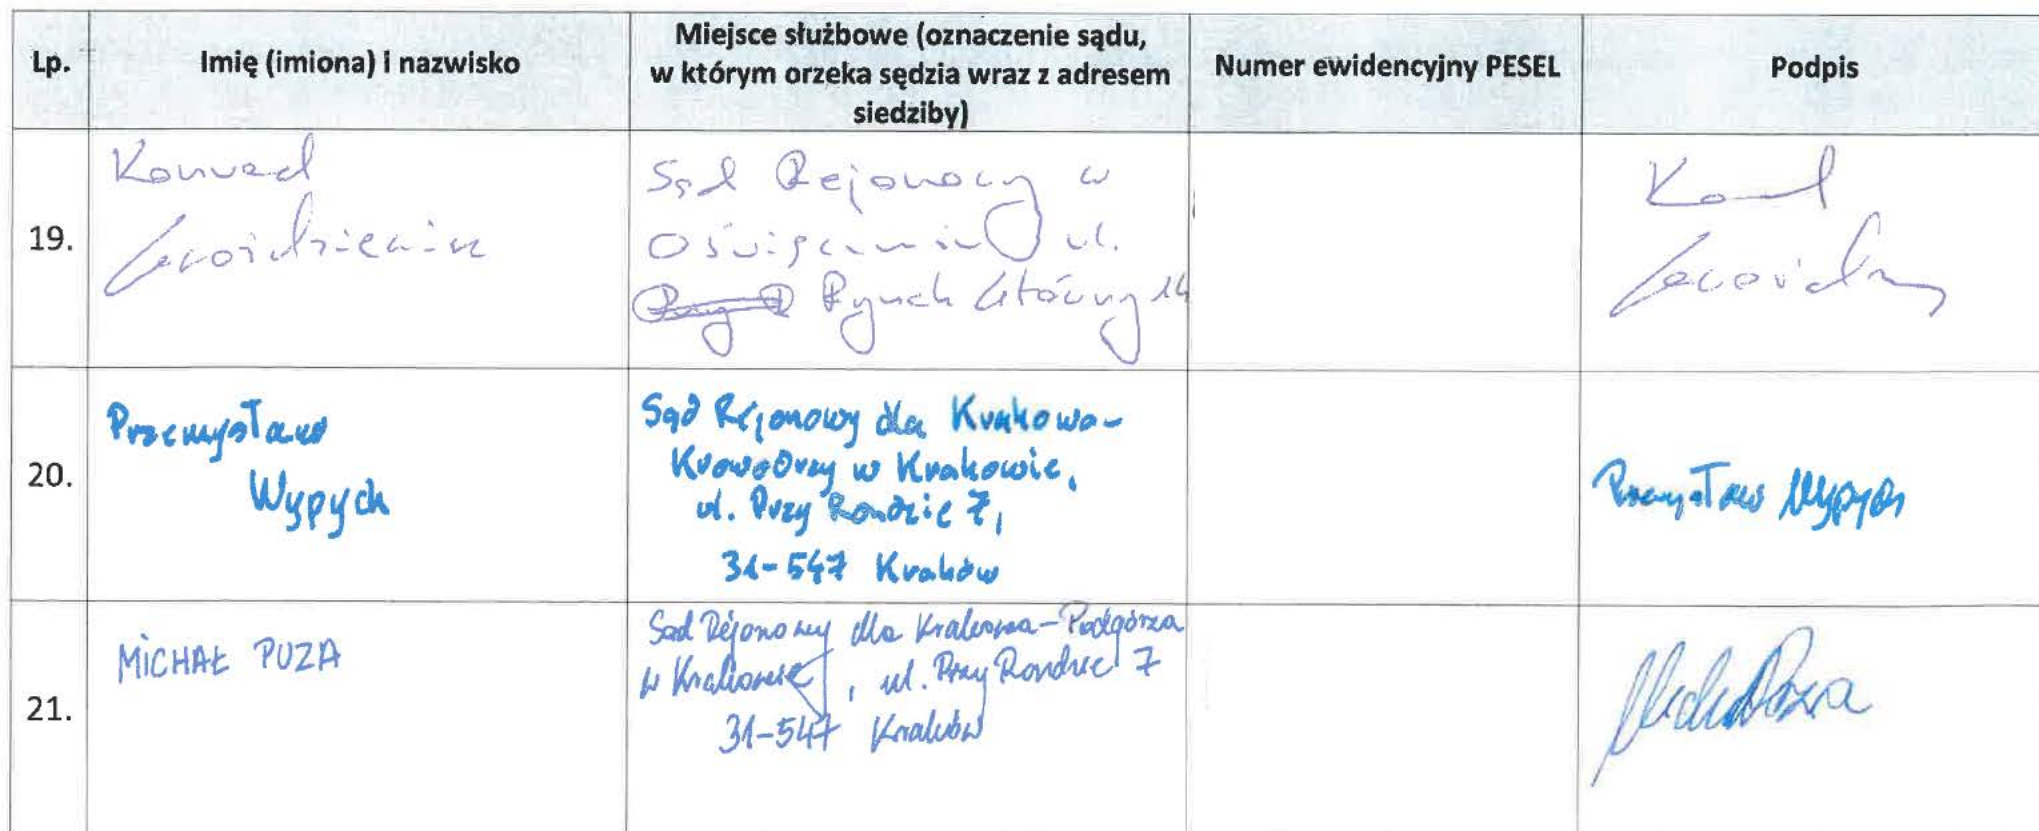 Lp.
Imię (imiona) i nazwisko
Miejsce służbowe (oznaczenie sądu,
w którym orzeka sędzia wraz z adresem
siedziby)
Numer ewidencyjny PESEL
Podpis
19.
Konrad
Gwoździewicz
Sąd Rejonowy w
Oświęcimiu ul.
Rynek Główny 14
20.
Przemysław
Wypych
Sąd Rejonowy dla Krakowa-
Krowodrzy w Krakowie,
ul. Przy Rondzie 7,
31-547 Kraków
Przemysław Wypych
21.
MICHAŁ PUZA
Sąd Rejonowy dla Krakowa-Podgórza
w Krakowie, ul. Przy Rondzie 7
31-547 Kraków